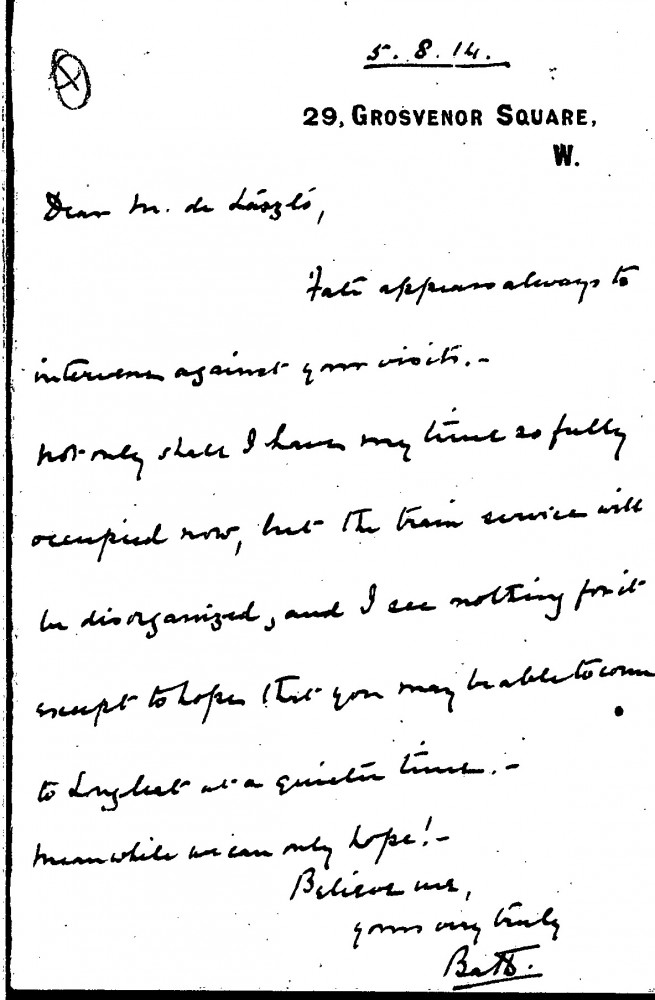 5.8.14.
29, GROSVENOR SQUARE,
W.
Dear M. de László,
Fate appears always to
intervene against your visits.-
Not only shall I have my time so fully
occupied now, but the train service will
be disorganized, and I see nothing for it
except to hope that you may be able to come
to Longleat at a quieter time.-
Meanwhile we can only hope!-
Believe me,
yours very truly
Bath.